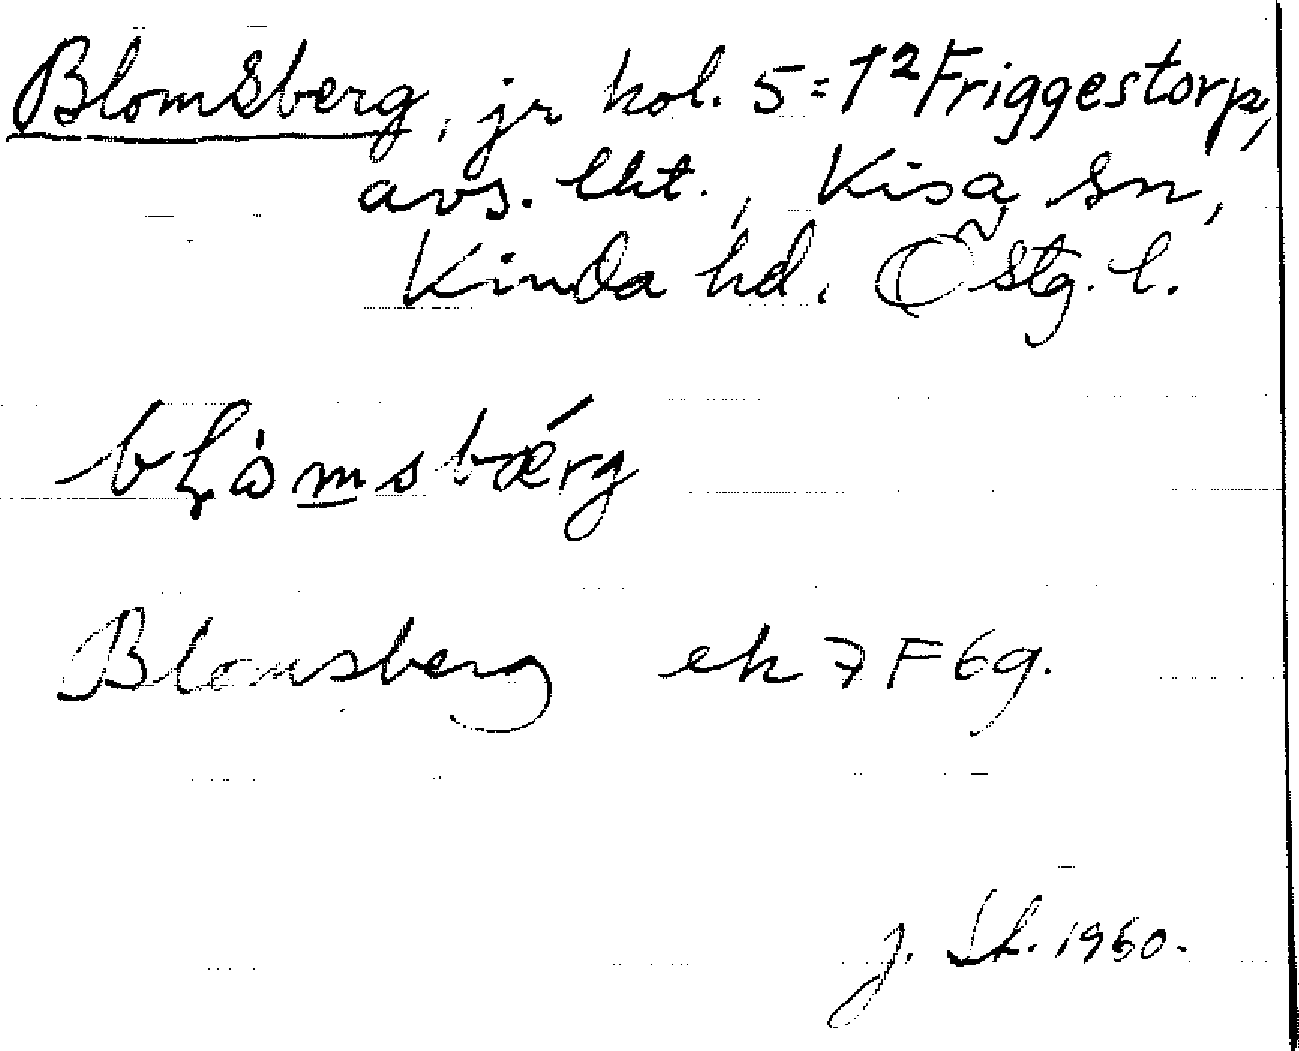 Blomsberg, jr kol. 5 = 1² Friggestorp,
avs. lht., Kisa sn,
Kinda hd. Östg. l.
bḷòmsbærg
Blomsberg ek 7F6g.
J. Sk. 1960.